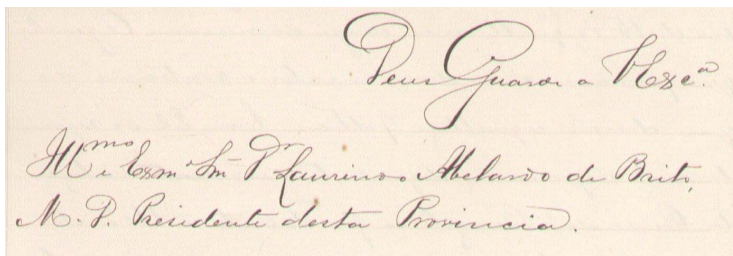 Deus Guarde a V Exc.ª
Illmo e Exmo Snr Dr Laurindo Abelardo de Brito,
M. D. Presidente desta Provincia.